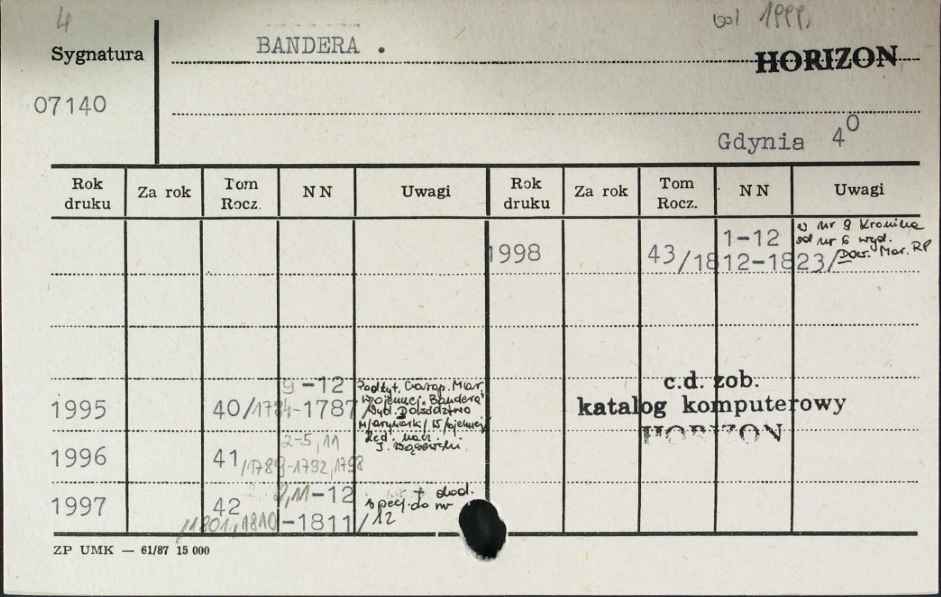 4
od 1999.
Sygnatura
BANDERA .
HORIZON
07140
Gdynia 4⁰
Rok druku Za rok Tom Rocz. NN Uwagi Rok druku Za rok Tom Rocz. NN Uwagi
1998 43/1812-1823/ 1-12 w nr 9 Kronika
od nr 6 wyd.
Dow. Mar. RP
1995 40/1784-1787/ 9-12 Podtyt. Czasop. Mar.
Wojennej. "Bandera"
Wyd. Dowództwo
M/arynarki/ W/ojennej
Red. nacz.
c.d. zob.
katalog komputerowy
HORIZON
1996 41/1789-1792,1798 2-5,11
1997 42 -12
/1801,1810-1811/ + dod.
specj. do nr
12
ZP UMK — 61/87 15 000